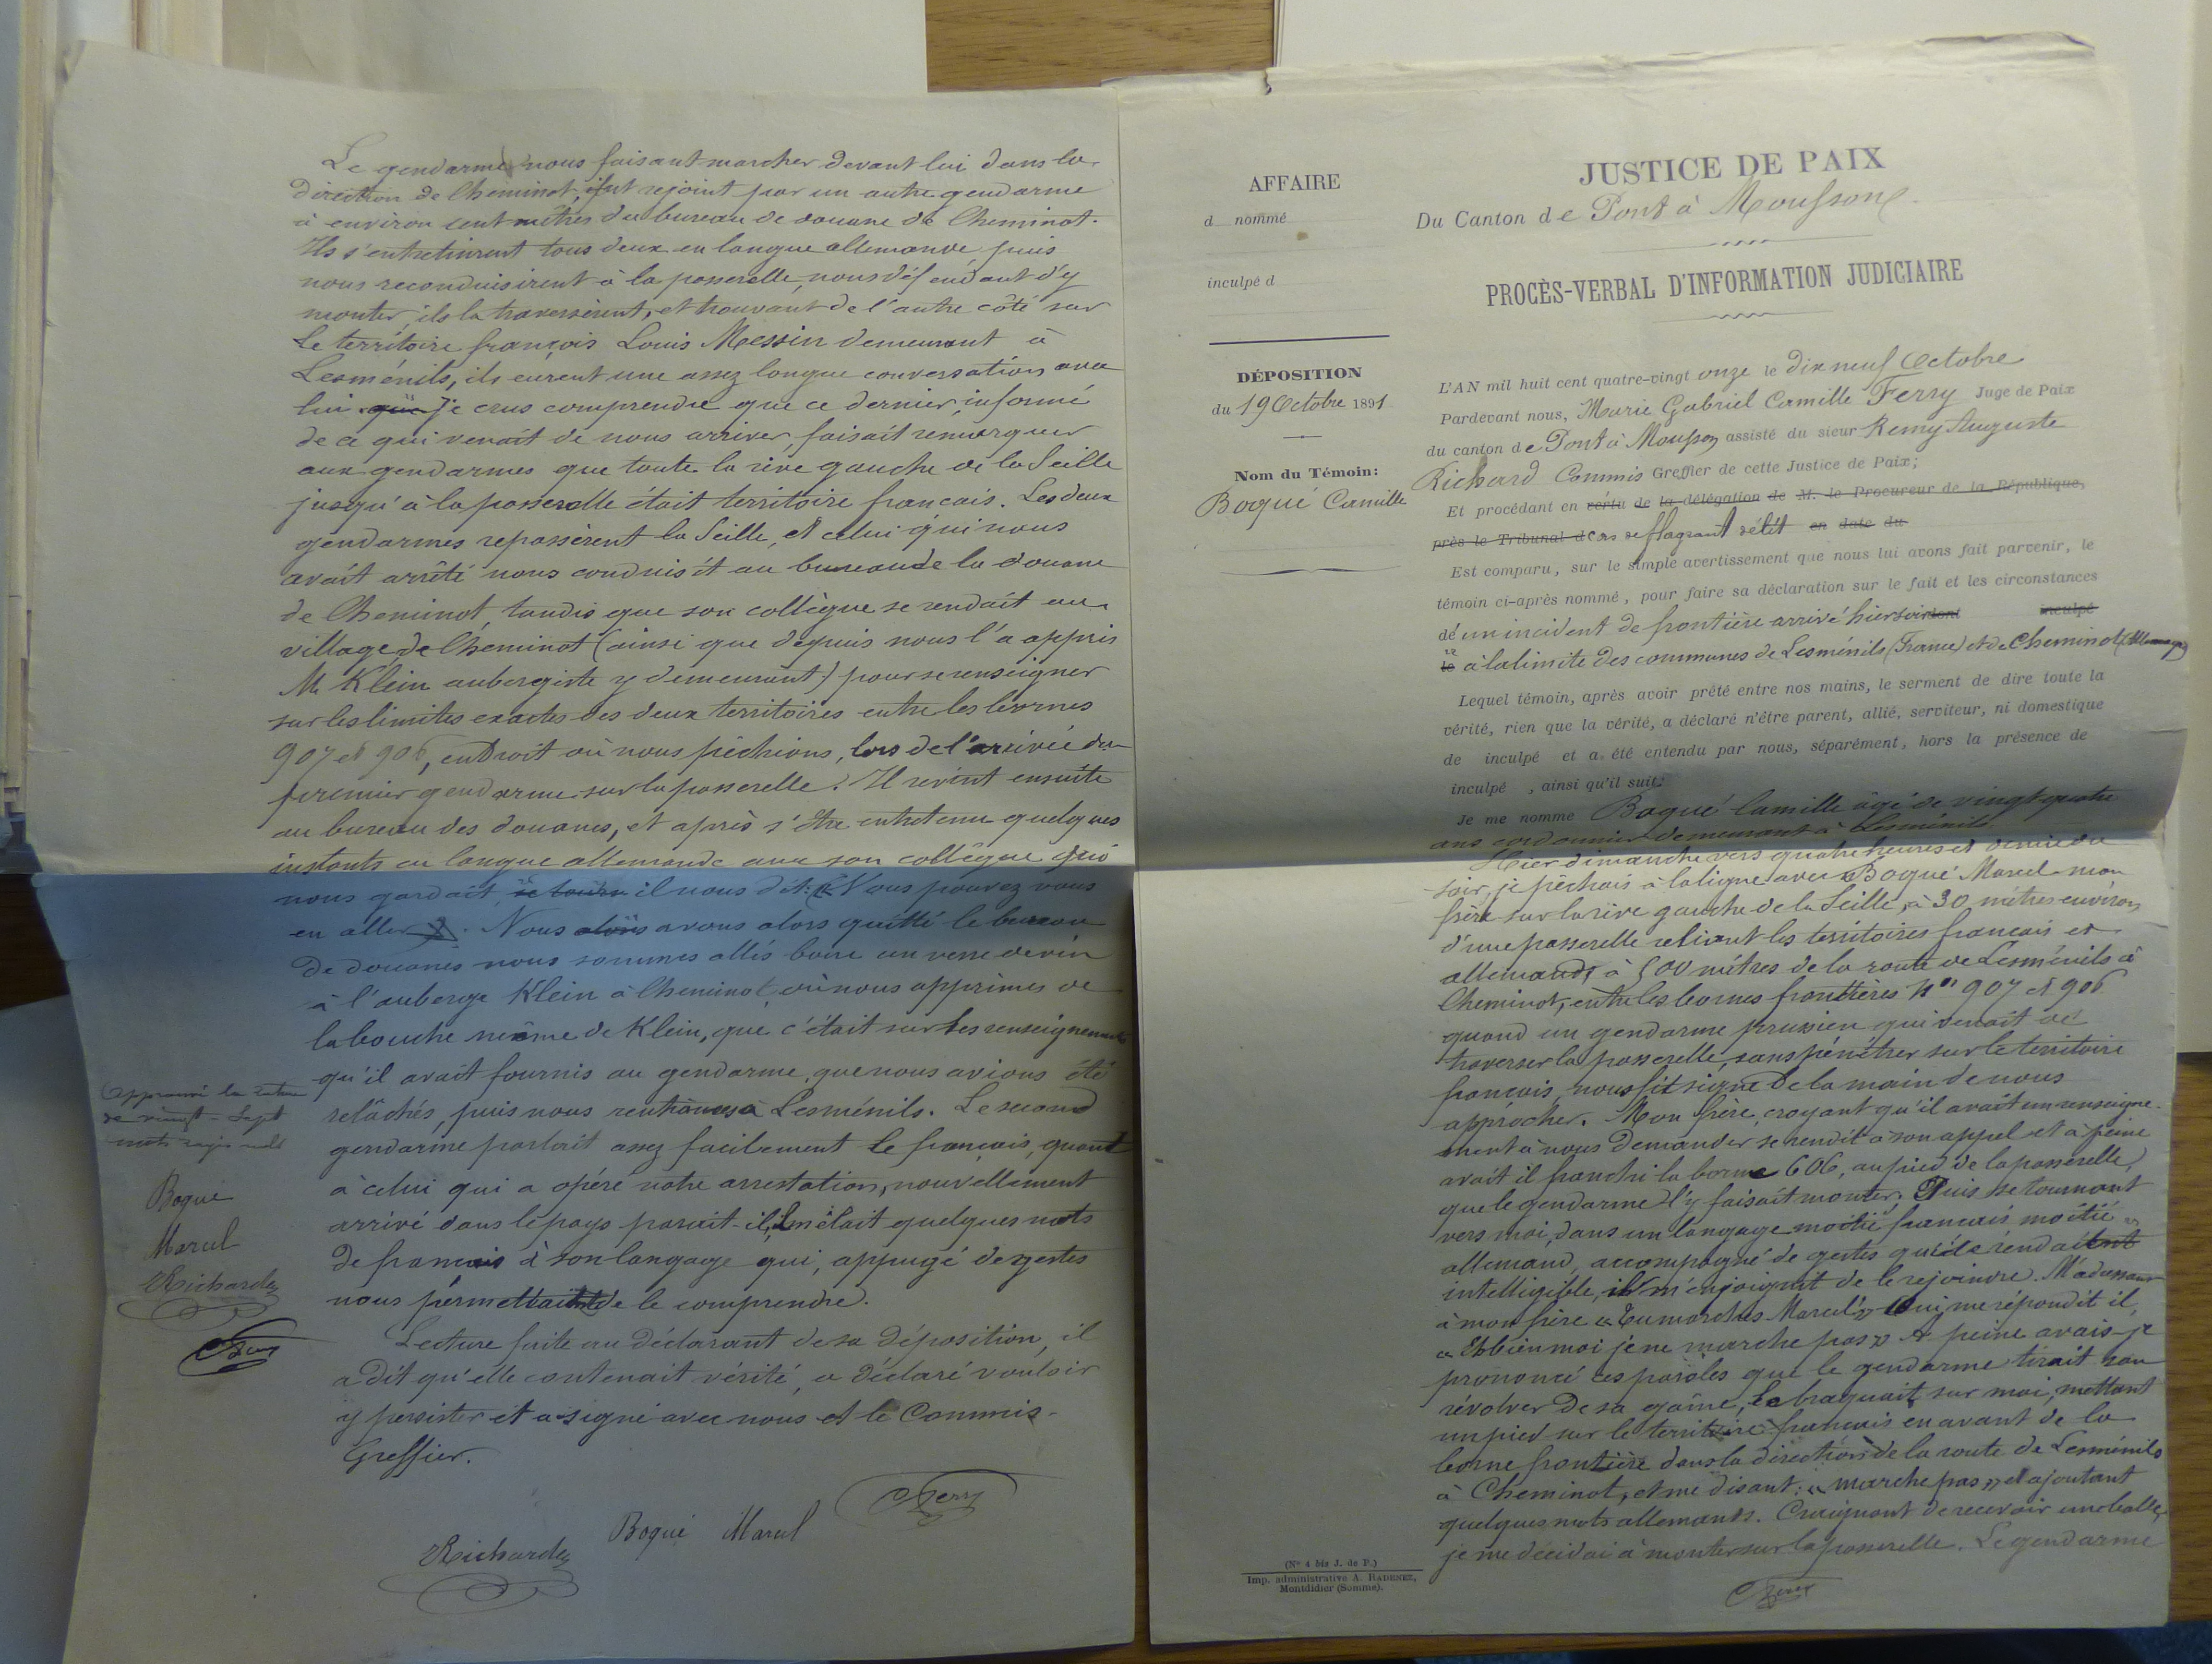 AFFAIRE
d nommé
inculpé d
DÉPOSITION
du 19 Octobre 1891
Nom du Témoin:
Boqué Camille
(N° 4 bis J. de P.)
Imp. administrative A. RADENEZ,
Montdidier (Somme).
JUSTICE DE PAIX
Du Canton de Pont à Mousson
PROCÈS-VERBAL D'INFORMATION JUDICIAIRE
L'AN mil huit cent quatre-vingt onze le dix neuf Octobre
Pardevant nous, Marie Gabriel Camille Ferry Juge de Paix
du canton de Pont à Mousson assisté du sieur Remy Auguste
Richard Commis Greffier de cette Justice de Paix;
Et procédant en vertu de la délégation de M. le Procureur de la République,
près le Tribunal d cas de flagrant délit en date du
Est comparu, sur le simple avertissement que nous lui avons fait parvenir, le
témoin ci-après nommé, pour faire sa déclaration sur le fait et les circonstances
d'un incident de frontière arrivé hier soir dont inculpé
le à la limite des communes de Lesménils (France) et de Cheminot (Allemagne)
Lequel témoin, après avoir prêté entre nos mains, le serment de dire toute la
vérité, rien que la vérité, a déclaré n'être parent, allié, serviteur, ni domestique
de inculpé et a été entendu par nous, séparément, hors la présence de
inculpé , ainsi qu'il suit:
Je me nomme Boqué Camille âgé de vingt quatre
ans cordonnier demeurant à Lesménils
Hier dimanche vers quatre heures et demie du
soir, je pêchais à la ligne avec Boqué Marcel mon
frère sur la rive gauche de la Seille, à 30 mètres environ
d'une passerelle reliant les territoires français et
allemands, à 500 mètres de la route de Lesménils à
Cheminot, entre les bornes frontières Nos 907 et 906
quand un gendarme prussien qui venait de
traverser la passerelle, sans pénétrer sur le territoire
français, nous fit signe de la main de nous
approcher. Mon frère, croyant qu'il avait un renseigne-
ment à nous demander se rendit à son appel et à peine
avait il franchi la borne 606, au pied de la passerelle,
que le gendarme l'y faisait monter. Puis se tournant
vers moi, dans un langage moitié français moitié
allemand, accompagné de gestes qui le rendaient
intelligible, il m'enjoignit de le rejoindre. M'adressant
à mon frère « Tu marches Marcel » « Oui, me répondit il,
« Eh bien moi je ne marche pas » A peine avais-je
prononcé ces paroles que le gendarme tirait son
révolver de sa gaîne, le braquait sur moi, mettant
un pied sur le territoire français en avant de la
borne frontière dans la direction de la route de Lesménils
à Cheminot, et me disant: « marche pas » et ajoutant
quelques mots allemands. Craignant de recevoir une balle,
je me décidai à monter sur la passerelle. Le gendarme
Ferry
Le gendarme nous faisant marcher devant lui dans la
direction de Cheminot, fut rejoint par un autre gendarme
à environ cent mètres du bureau de douane de Cheminot.
Ils s'entretinrent tous deux en langue allemande, puis
nous reconduisirent à la passerelle, nous défendant d'y
monter, ils la traversèrent, et trouvant de l'autre côté sur
le territoire français Louis Messin demeurant à
Lesménils, ils eurent une assez longue conversation avec
lui que je crus comprendre que ce dernier, informé
de ce qui venait de nous arriver, faisait remarquer
aux gendarmes que toute la rive gauche de la Seille
jusqu'à la passerelle était territoire français. Les deux
gendarmes repassèrent la Seille, et celui qui nous
avait arrêté nous conduisit au bureau de la douane
de Cheminot, tandis que son collègue se rendait au
village de Cheminot (ainsi que depuis nous l'a appris
M. Klein aubergiste y demeurant) pour se renseigner
sur les limites exactes des deux territoires entre les bornes
907 et 906, endroit où nous pêchions, lors de l'arrivée du
premier gendarme sur la passerelle. Il revint ensuite
au bureau des douanes, et après s'être entretenu quelques
instants en langue allemande avec son collègue qui
nous gardait, il nous dit: « Vous pouvez vous
en aller ». Nous alors avons alors quitté le bureau
de douanes nous sommes allés boire un verre de vin
à l'auberge Klein à Cheminot, où nous apprîmes de
la bouche même de Klein, que c'était sur les renseignements
qu'il avait fournis au gendarme, que nous avions été
relâchés, puis nous rentrâmes à Lesménils. Le second
gendarme parlait assez facilement le français, quant
à celui qui a opéré notre arrestation, nouvellement
arrivé dans le pays parait-il, il mêlait quelques mots
de français à son langage qui, appuyé de gestes
nous permettait de le comprendre.
Lecture faite au déclarant de sa déposition, il
a dit qu'elle contenait vérité, a déclaré vouloir
y persister et a signé avec nous et le Commis-
Greffier.
Richard Boqué Marcel Ferry
Approuvé la rature
de vingt-sept
mots rayés nuls
Boqué
Marcel
Richard
Ferry